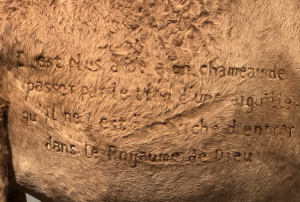 Il est plus aisé à un chameau de
passer par le trou d'une aiguille
qu'il ne l'est au riche d'entrer
dans le Royaume de Dieu